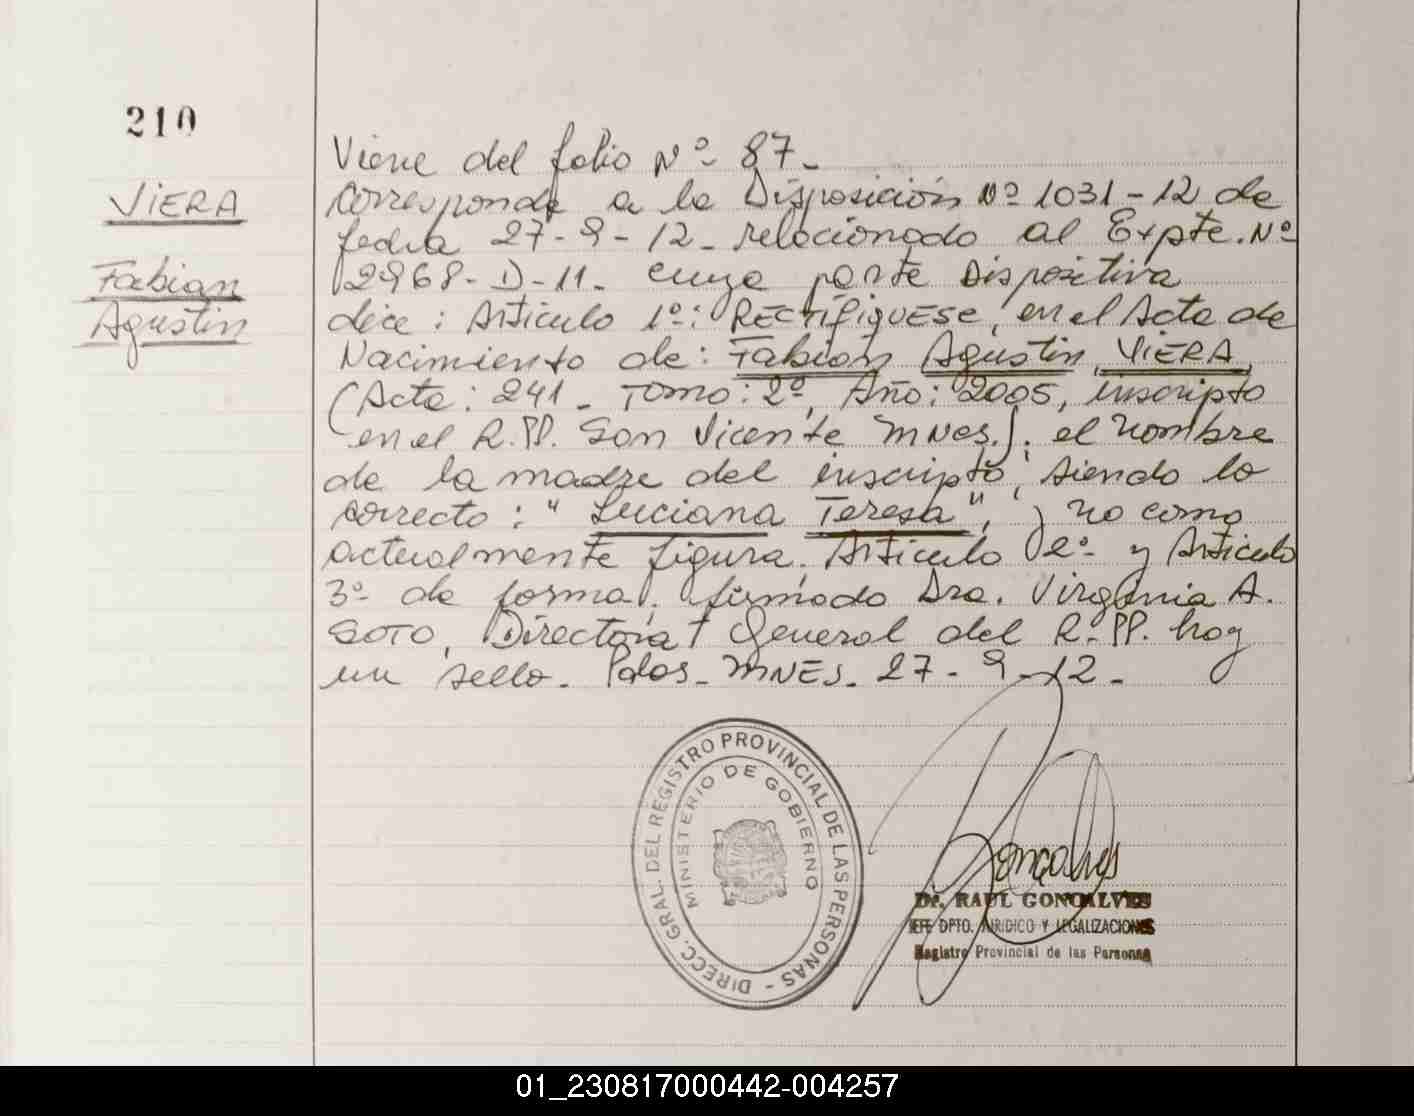 210
VIERA
Fabian
Agustin
Viene del folio Nº 87-
Corresponde a la Disposición Nº 1031-12 de
fecha 27-9-12- relacionado al Expte. Nº
2968-D-11- cuya parte Dispositiva
dice: Articulo 1º: RECTIFIQUESE, en el Acta de
Nacimiento de: Fabian Agustin VIERA
(Acta: 241- Tomo: 2º, Año: 2005, inscripto
en el R.PP. San Vicente MNES.); el nombre
de la madre del inscripto, siendo lo
correcto: "Luciana Teresa", y no como
actualmente figura. Articulo 2º y Articulo
3º de forma, firmado Dra. Virginia A.
SOTO, Directora General del R.PP. hay
un sello- Pdas- MNES- 27-9-12-
DIRECC. GRAL. DEL REGISTRO PROVINCIAL DE LAS PERSONAS -
MINISTERIO DE GOBIERNO
Gonçalves
Dr. RAUL GONCALVES
JEFE DPTO. JURIDICO Y LEGALIZACIONES
Registro Provincial de las Personas
01_230817000442-004257